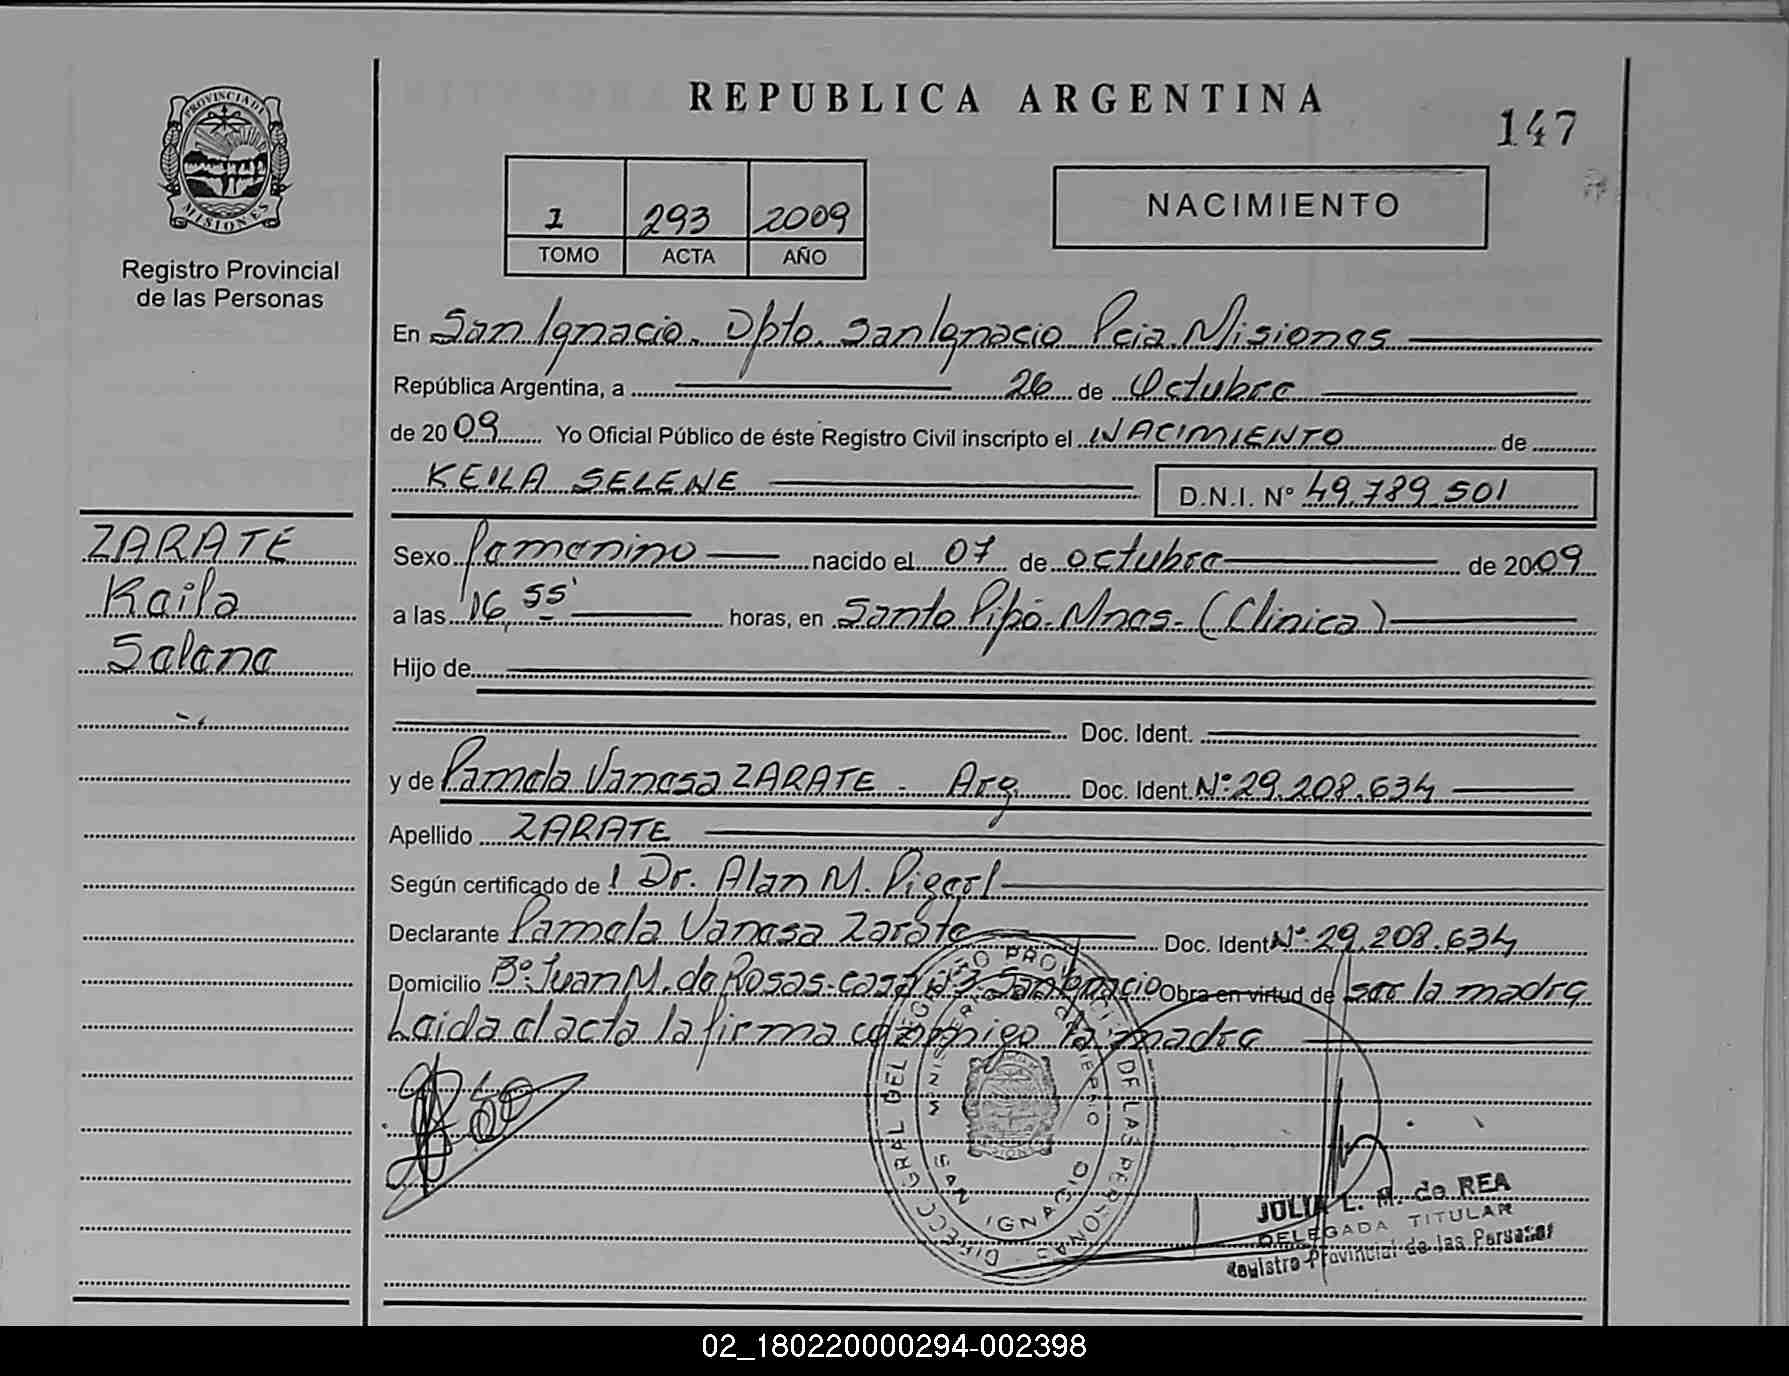 REPUBLICA ARGENTINA
147
PROVINCIA DE
MISIONES
Registro Provincial
de las Personas
1 293 2009
TOMO ACTA AÑO
NACIMIENTO
En San Ignacio. Dpto. San Ignacio Pcia. Misiones
República Argentina, a 26 de Octubre
de 2009 Yo Oficial Público de éste Registro Civil inscripto el NACIMIENTO de
KEILA SELENE D.N.I. N° 49.789.501
ZARATE
Keila
Selene
Sexo femenino nacido el 07 de octubre de 2009
a las 16,55' horas, en Santo Pipó. Mnes. (Clinica)
Hijo de
Doc. Ident.
y de Pamela Vanesa ZARATE. Arg. Doc. Ident. N°:29.208.634
Apellido ZARATE
Según certificado de Dr. Alan M.
Declarante Pamela Vanesa Zarate Doc. Ident N°:29.208.634
Domicilio B° Juan M. de Rosas-casa San Ignacio Obra en virtud de ser la madre
Leida el acta la firma conmigo la madre
DIRECC. GRAL. DEL REGISTRO PROVINCIAL DE LAS PERSONAS
SAN IGNACIO
JULIA L. M. de REA
DELEGADA TITULAR
Registro Provincial de las Personas
02_180220000294-002398